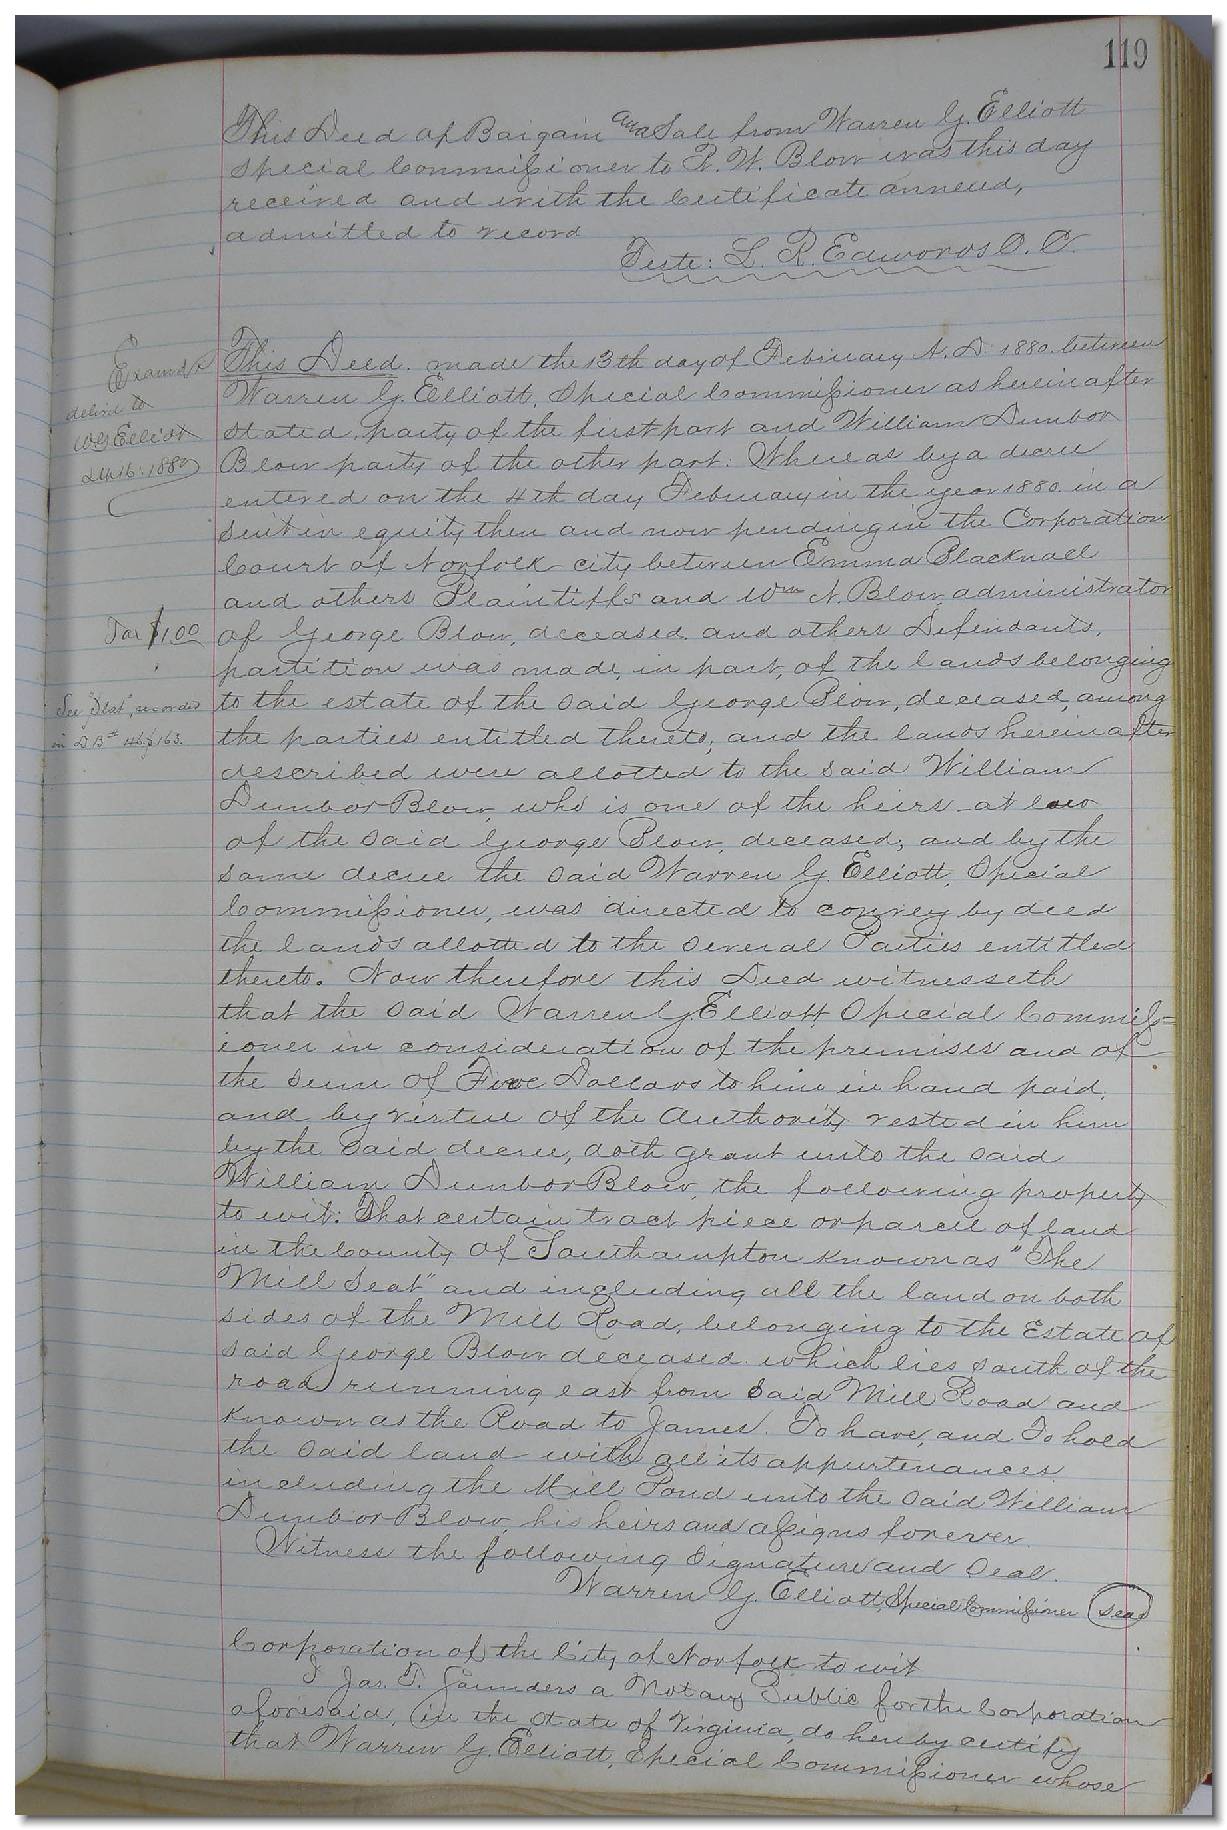 119
This Deed of Bargain and Sale from Warren G. Elliott
Special Commissioner to R. W. Blow was this day
received and with the Certificate annexed,
admitted to record
Teste: L. R. Edwards C. C.
This Deed. made the 13th day of February A. D. 1880. between
Warren G. Elliott, Special Commissioner as hereinafter
stated, party of the first part and William Dunbar
Blow party of the other part: Whereas by a decree
entered on the 4th day February in the year 1880. in a
suit in equity then and now pending in the Corporation
Court of Norfolk city between Emma Blacknall
and others Plaintiffs and Wm N. Blow, administrator
of George Blow, deceased and others Defendants,
partition was made, in part, of the lands belonging
to the estate of the said George Blow, deceased, among
the parties entitled thereto, and the lands hereinafter
described were allotted to the said William
Dunbar Blow, who is one of the heirs at law
of the said George Blow, deceased; and by the
same decree the said Warren G. Elliott, Special
Commissioner, was directed to convey by deed
the lands allotted to the several Parties entitled
thereto. Now therefore this Deed witnesseth
that the said Warren G. Elliott Special Commiss=
ioner in consideration of the premises and of
the sum of Five Dollars to him in hand paid,
and by virtue of the Authority vested in him
by the said decree, doth grant unto the said
William Dunbar Blow, the following property
to wit: That certain tract piece or parcel of land
in the County of Southampton known as "The
Mill Seat" and including all the land on both
sides of the Mill Road, belonging to the Estate of
said George Blow deceased which lies south of the
road running east from said Mill Road and
known as the Road to James. To have, and To hold
the said land with all its appurtenances,
including the Mill Pond unto the said William
Dunbar Blow, his heirs and assigns forever.
Witness the following signature and seal.
Warren G. Elliott, Special Commissioner Seal
Corporation of the City of Norfolk to wit
I Jas. T. Saunders a Notary Public for the Corporation
aforesaid, in the State of Virginia, do hereby certify
that Warren G. Elliott, Special Commissioner whose
Examd &
delivd to
W G Elliott
1880
Tax $1.00
See "Plat", recorded
in D. Bk 163.